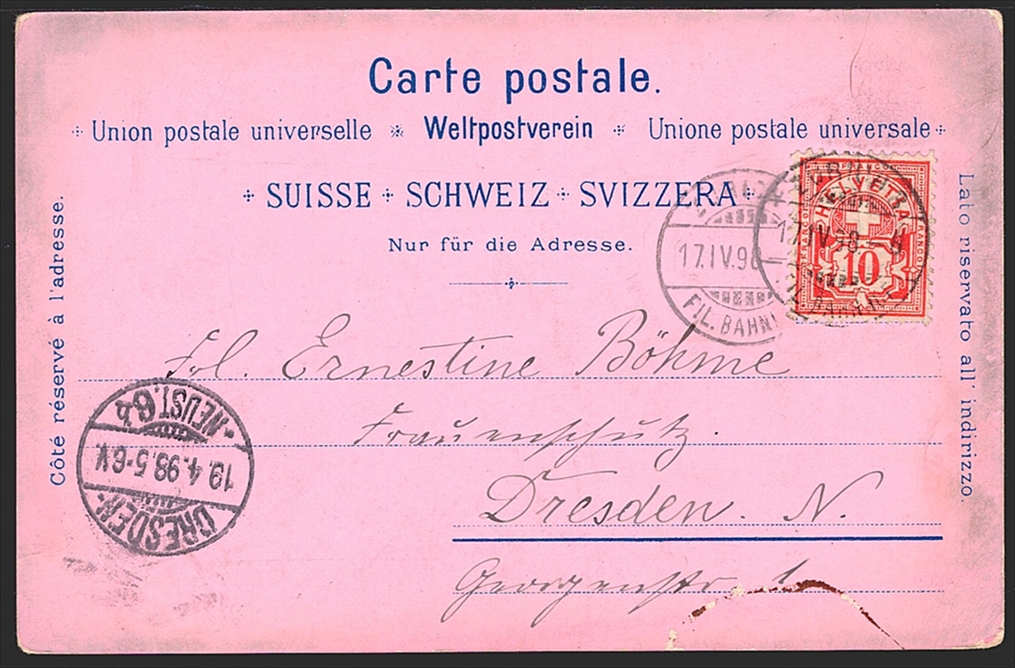 Carte postale.
Union postale universelle * Weltpostverein * Unione postale universale
SUISSE SCHWEIZ SVIZZERA
Nur für die Adresse.
Côté réservé à l'adresse.
Lato riservato all' indirizzo.
17.IV.98
FIL. BAHNH
FRANCO HELVETIA FRANCO
10
17.IV.98
Frl. Ernestine Böhme
Frauenschutz.
Dresden. N.
Georgenstr. 1
DRESDEN-
19.4.98.5-6V.
-NEUST.6b.